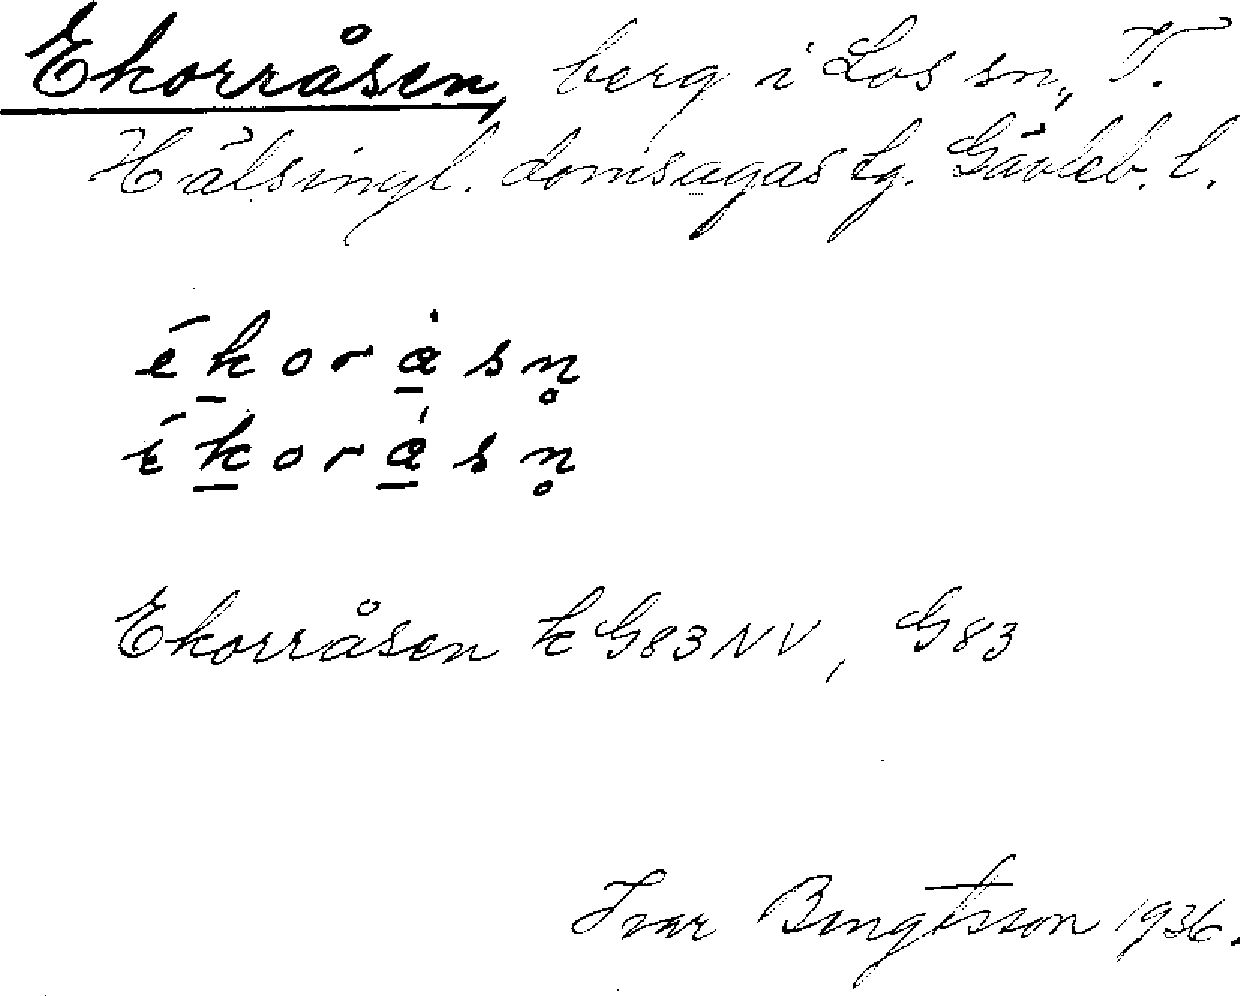 Ekorråsen, berg i Los sn, V.
Hälsingl. domsagas tg. Gävleb. l.
ékoràsn̥
ékoràsn̥
Ekorråsen k G83NV, G83
Ivar Bengtsson 1936.